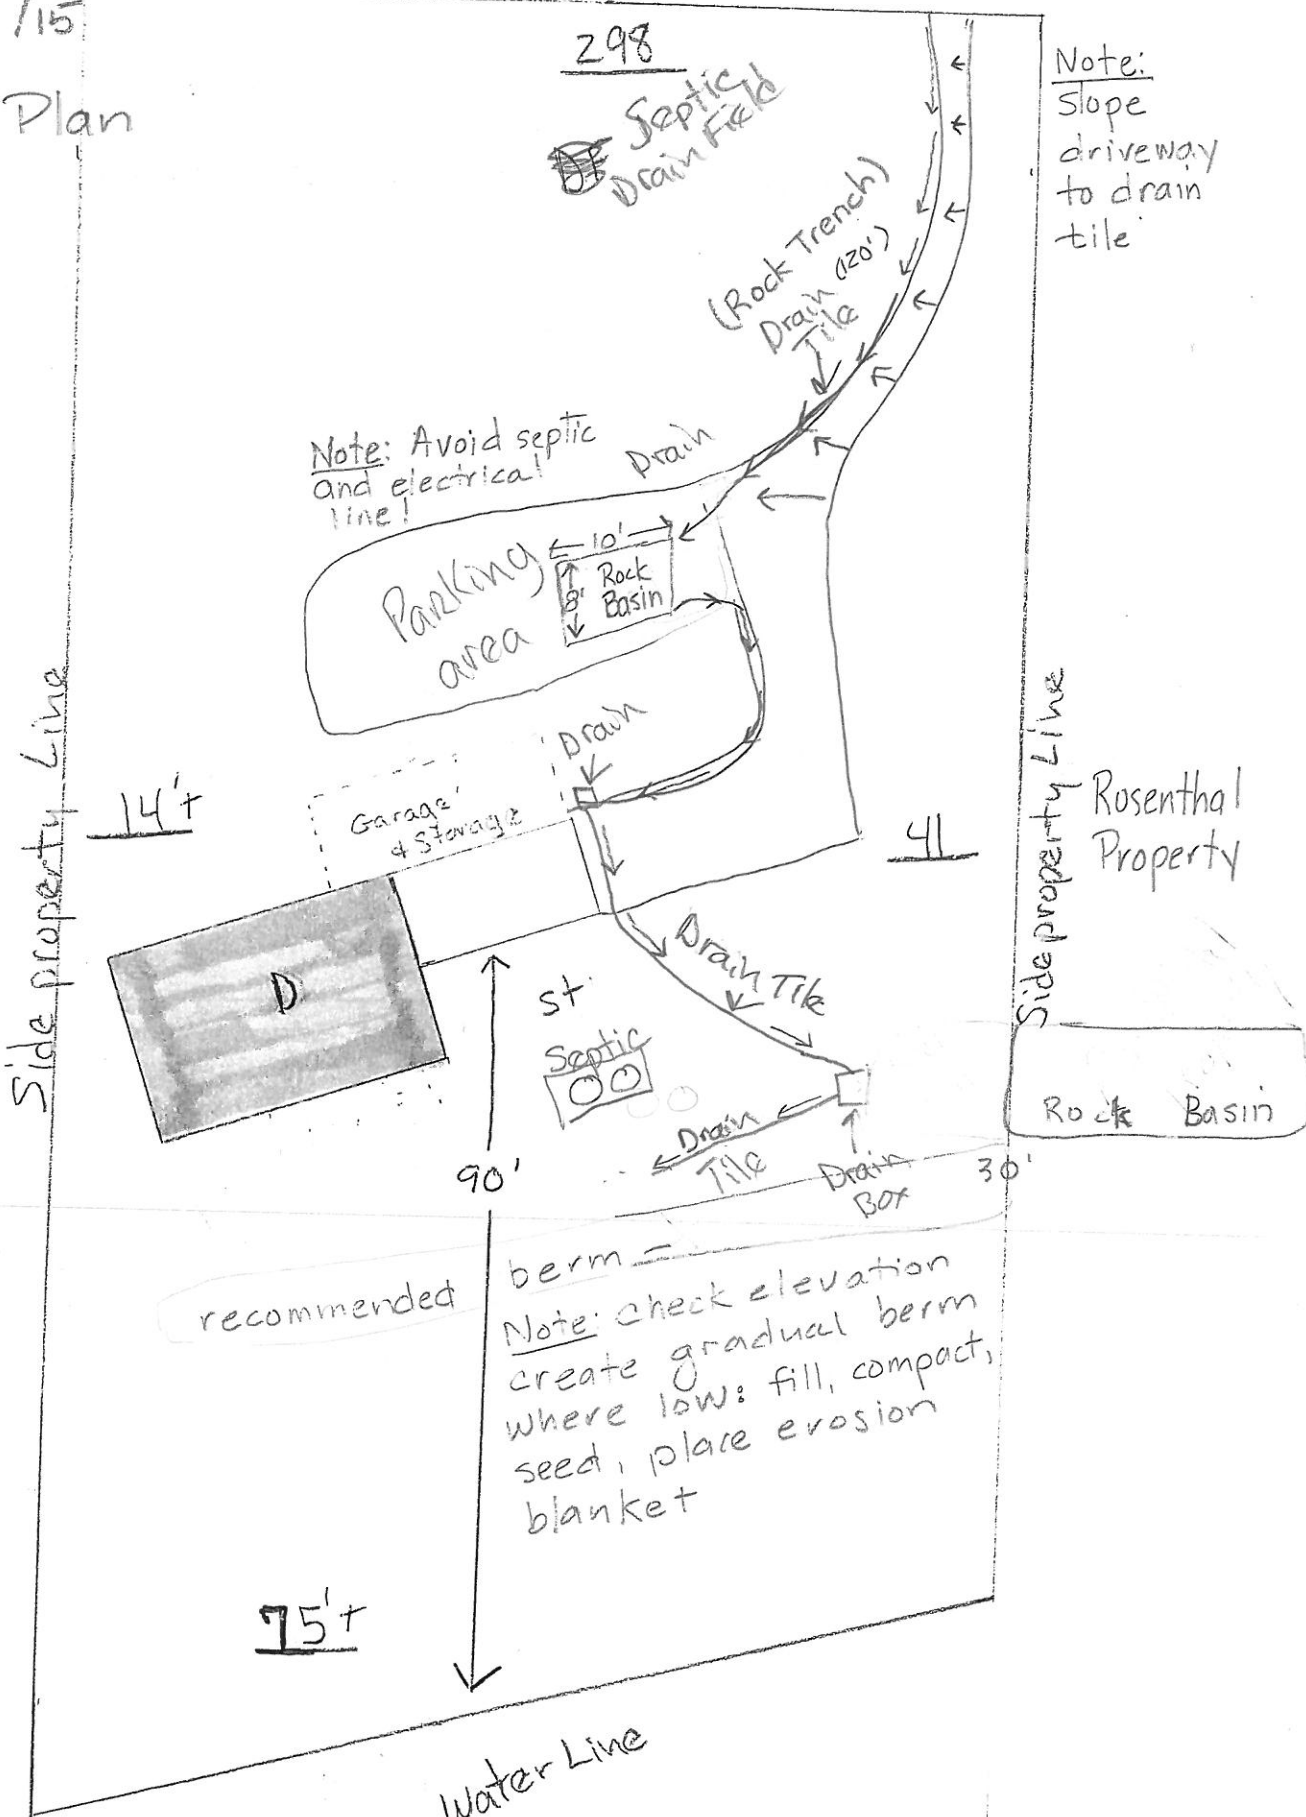 /15
Plan
298
Septic
Drain Field
Note:
Slope
driveway
to drain
tile
(Rock Trench)
Drain (120')
Tile
Note: Avoid septic
and electrical
line!
Drain
Parking
area
10'
8'
Rock
Basin
Drain
Garage
& Storage
14'+
41
Side property Line
Side property Line
Rosenthal
Property
D
St
Septic
Drain Tile
Drain
Tile
Drain
Box
Rock Basin
30'
90'
recommended
berm =
Note: Check elevation
create gradual berm
where low: fill, compact,
seed, place erosion
blanket
75'+
Water Line